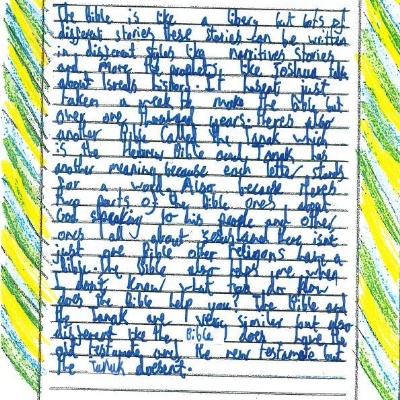 The Bible is like a libery but lots of
different stories these stories can be written
in different styles like narritives stories
and more the prophets like Joshua talk
about Isreals history. It hasent just
taken a week to make the Bible but
over one thousand years. Theres also
another Bible called the Tanak which
is the Hebrew Bible and Tanak has
another meaning because each letter stands
for a word. Also because theres
two parts of the Bible ones about
God speaking to his people and other
ones all about Jesus and there isnt
just one Bible other religons have a
Bible. the Bible also helps me when
I dont know what to do. How
does the Bible help you? The Bible and
the Tanak are very similar but also
different like the Bible does have the
old testamate and the new testamate but
the Tanak doesent.